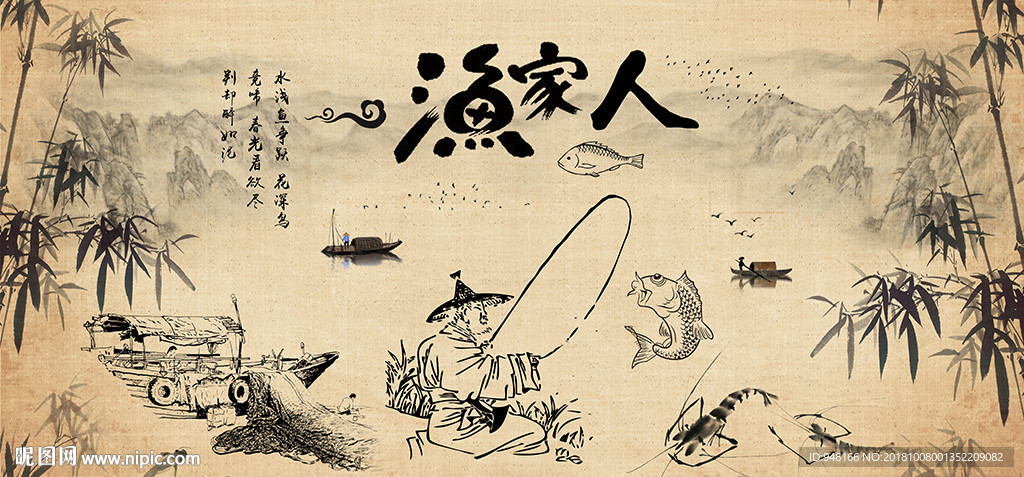 渔家人
水浅鱼争跃 花深鸟
竞啼 春光看欲尽
判却醉如泥
昵图网 www.nipic.com
ID:948166 NO:20181008001352209082